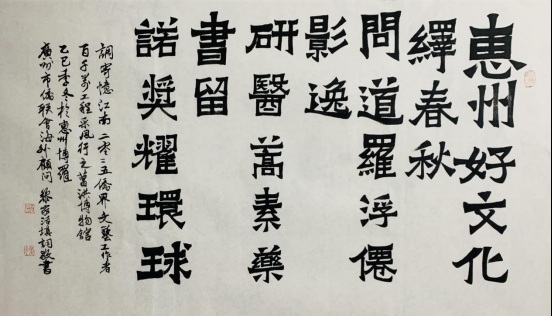 惠州好文化
繹春秋
問道羅浮僊
影逸
研醫蒿素藥
書留
諾奬耀環球
調寄憶江南二零二五僑界文藝工作者
百千萬工程采風行之葛洪博物館
乙巳季冬於惠州博羅
廣州市僑聯會海外顧問黎家填詞敬書